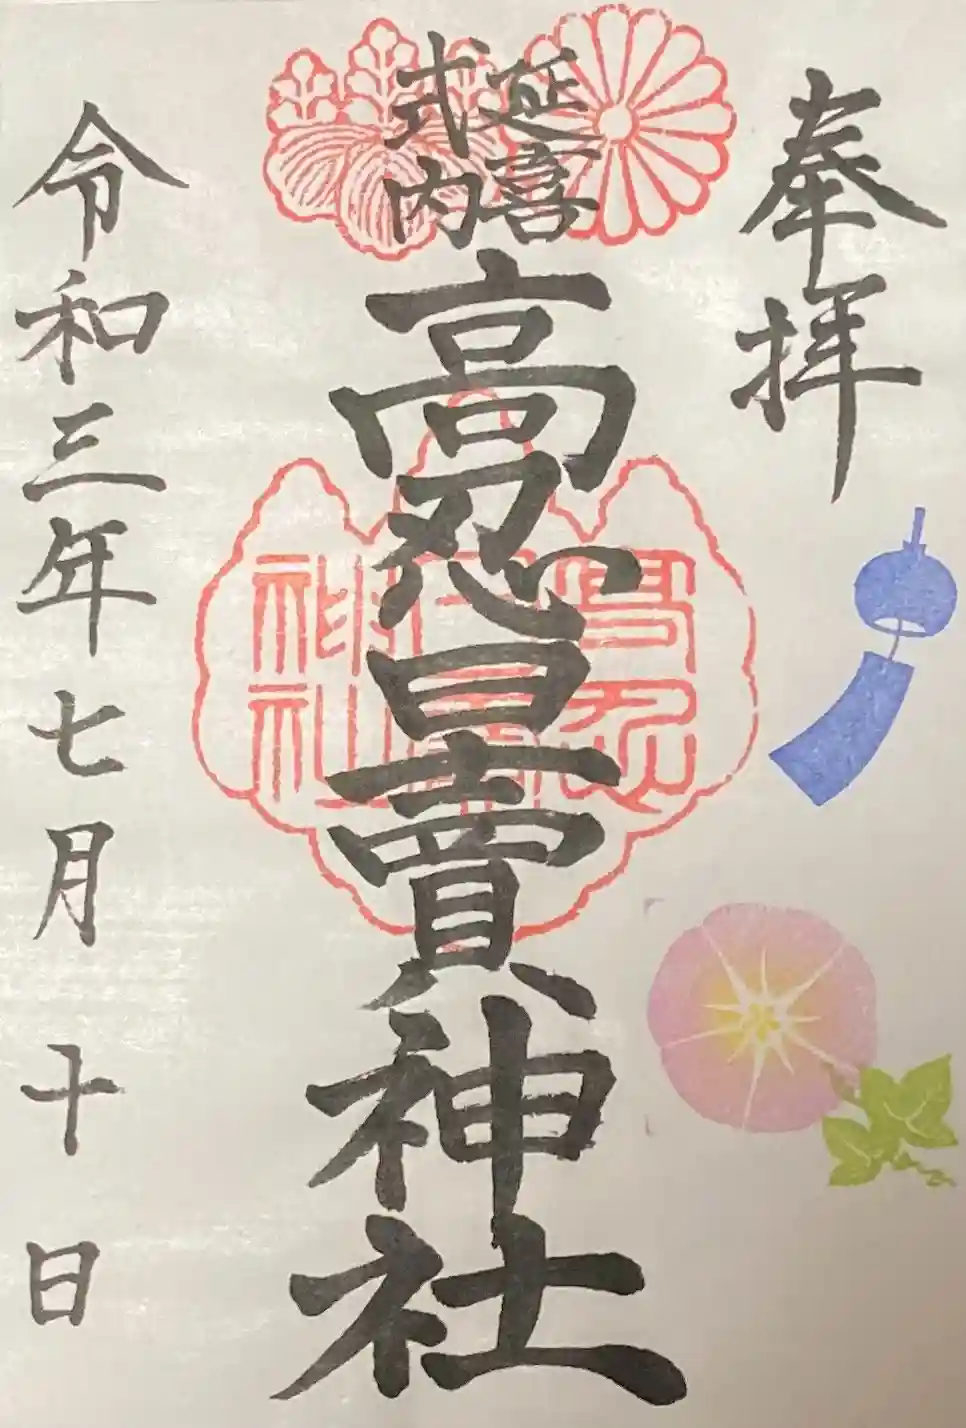 奉拝
延喜
式内
高忍日賣神社
高忍
神社
令和三年七月十日